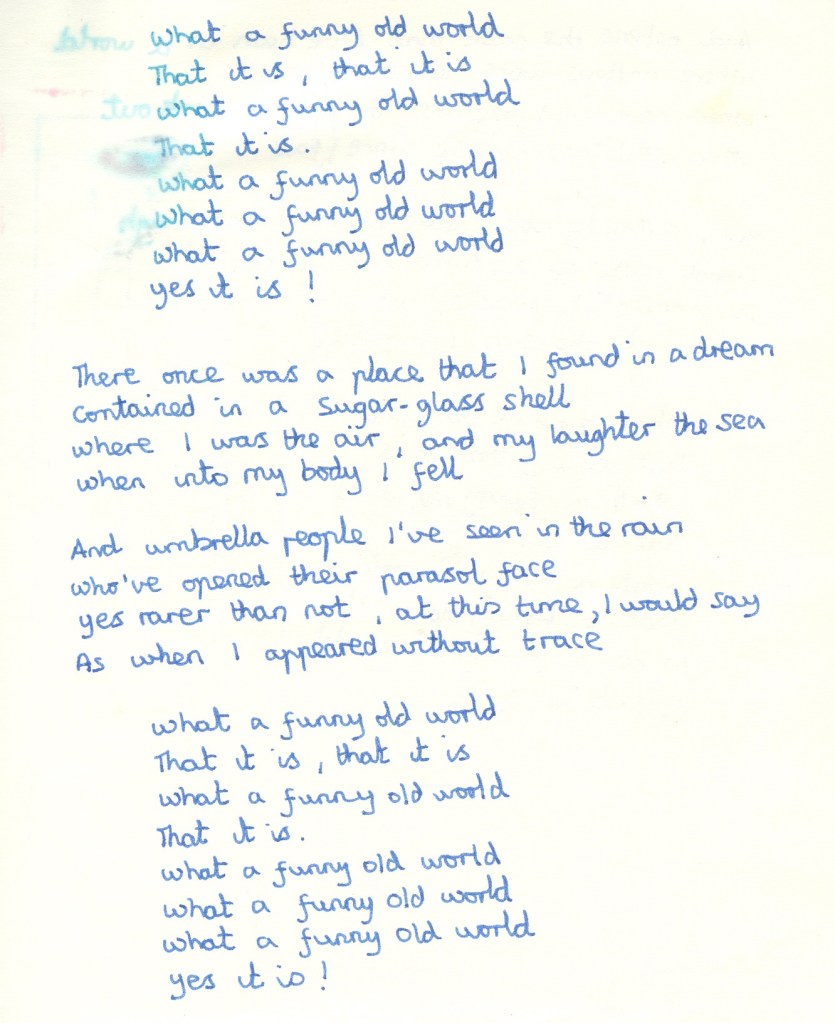 what a funny old world
That it is, that it is
what a funny old world
That it is.
what a funny old world
what a funny old world
what a funny old world
yes it is!
There once was a place that I found in a dream
contained in a sugar-glass shell
where I was the air, and my laughter the sea
when into my body I fell
And umbrella people I've seen in the rain
who've opened their parasol face
yes rarer than not, at this time, I would say
As when I appeared without trace
what a funny old world
That it is, that it is
what a funny old world
That it is.
what a funny old world
what a funny old world
what a funny old world
yes it is!